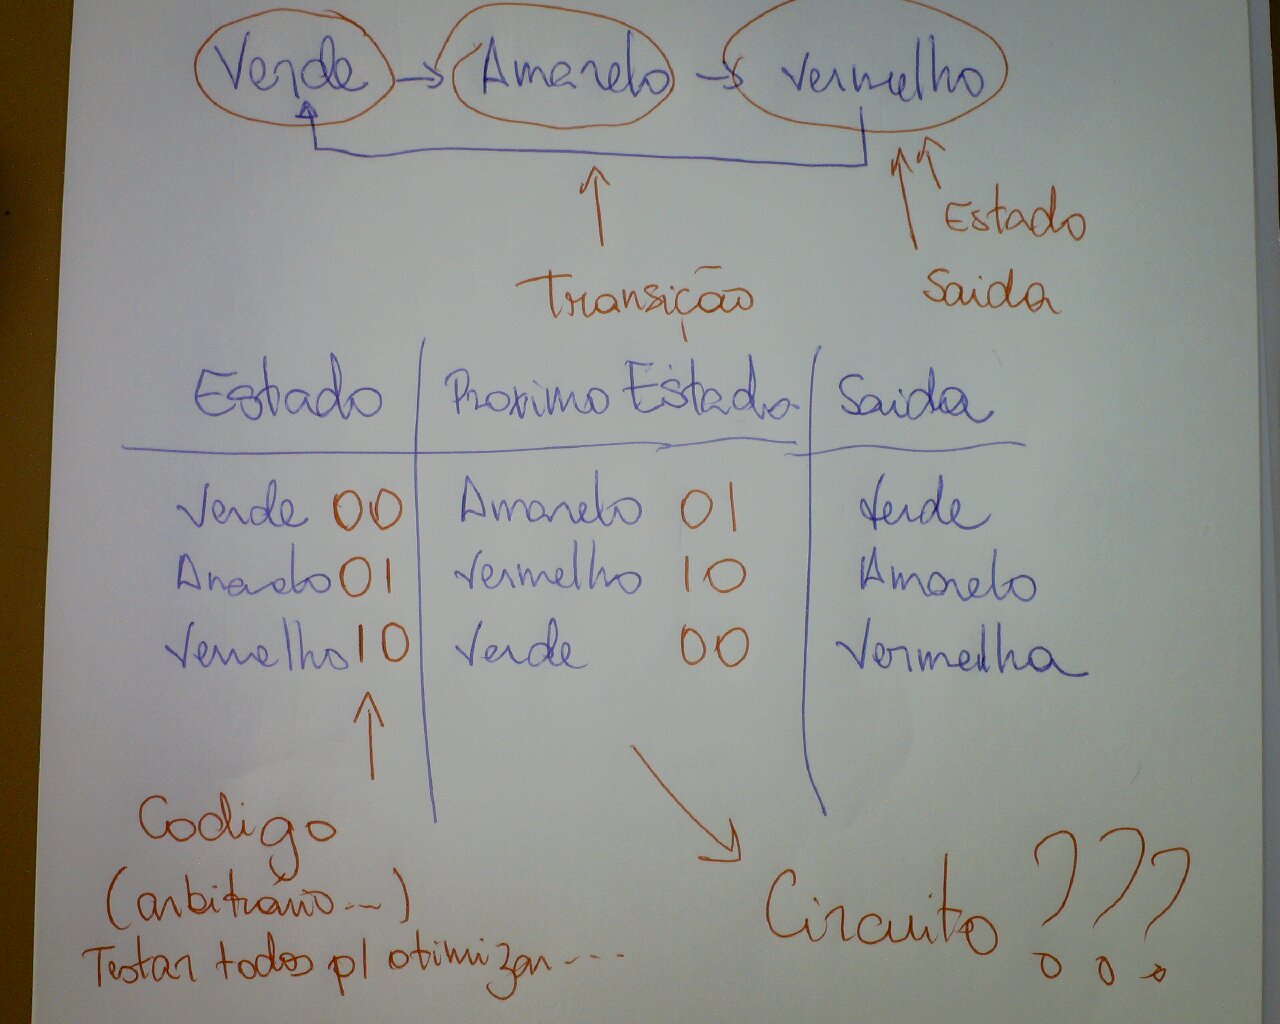 Verde → Amarelo → Vermelho
Estado
Saida
Transição
Estado Proximo Estado Saida
Verde 00 Amarelo 01 Verde
Amarelo 01 Vermelho 10 Amarelo
Vermelho 10 Verde 00 Vermelha
Codigo
(arbitrário...)
Testar todos p/ otimizar...
Circuito ???